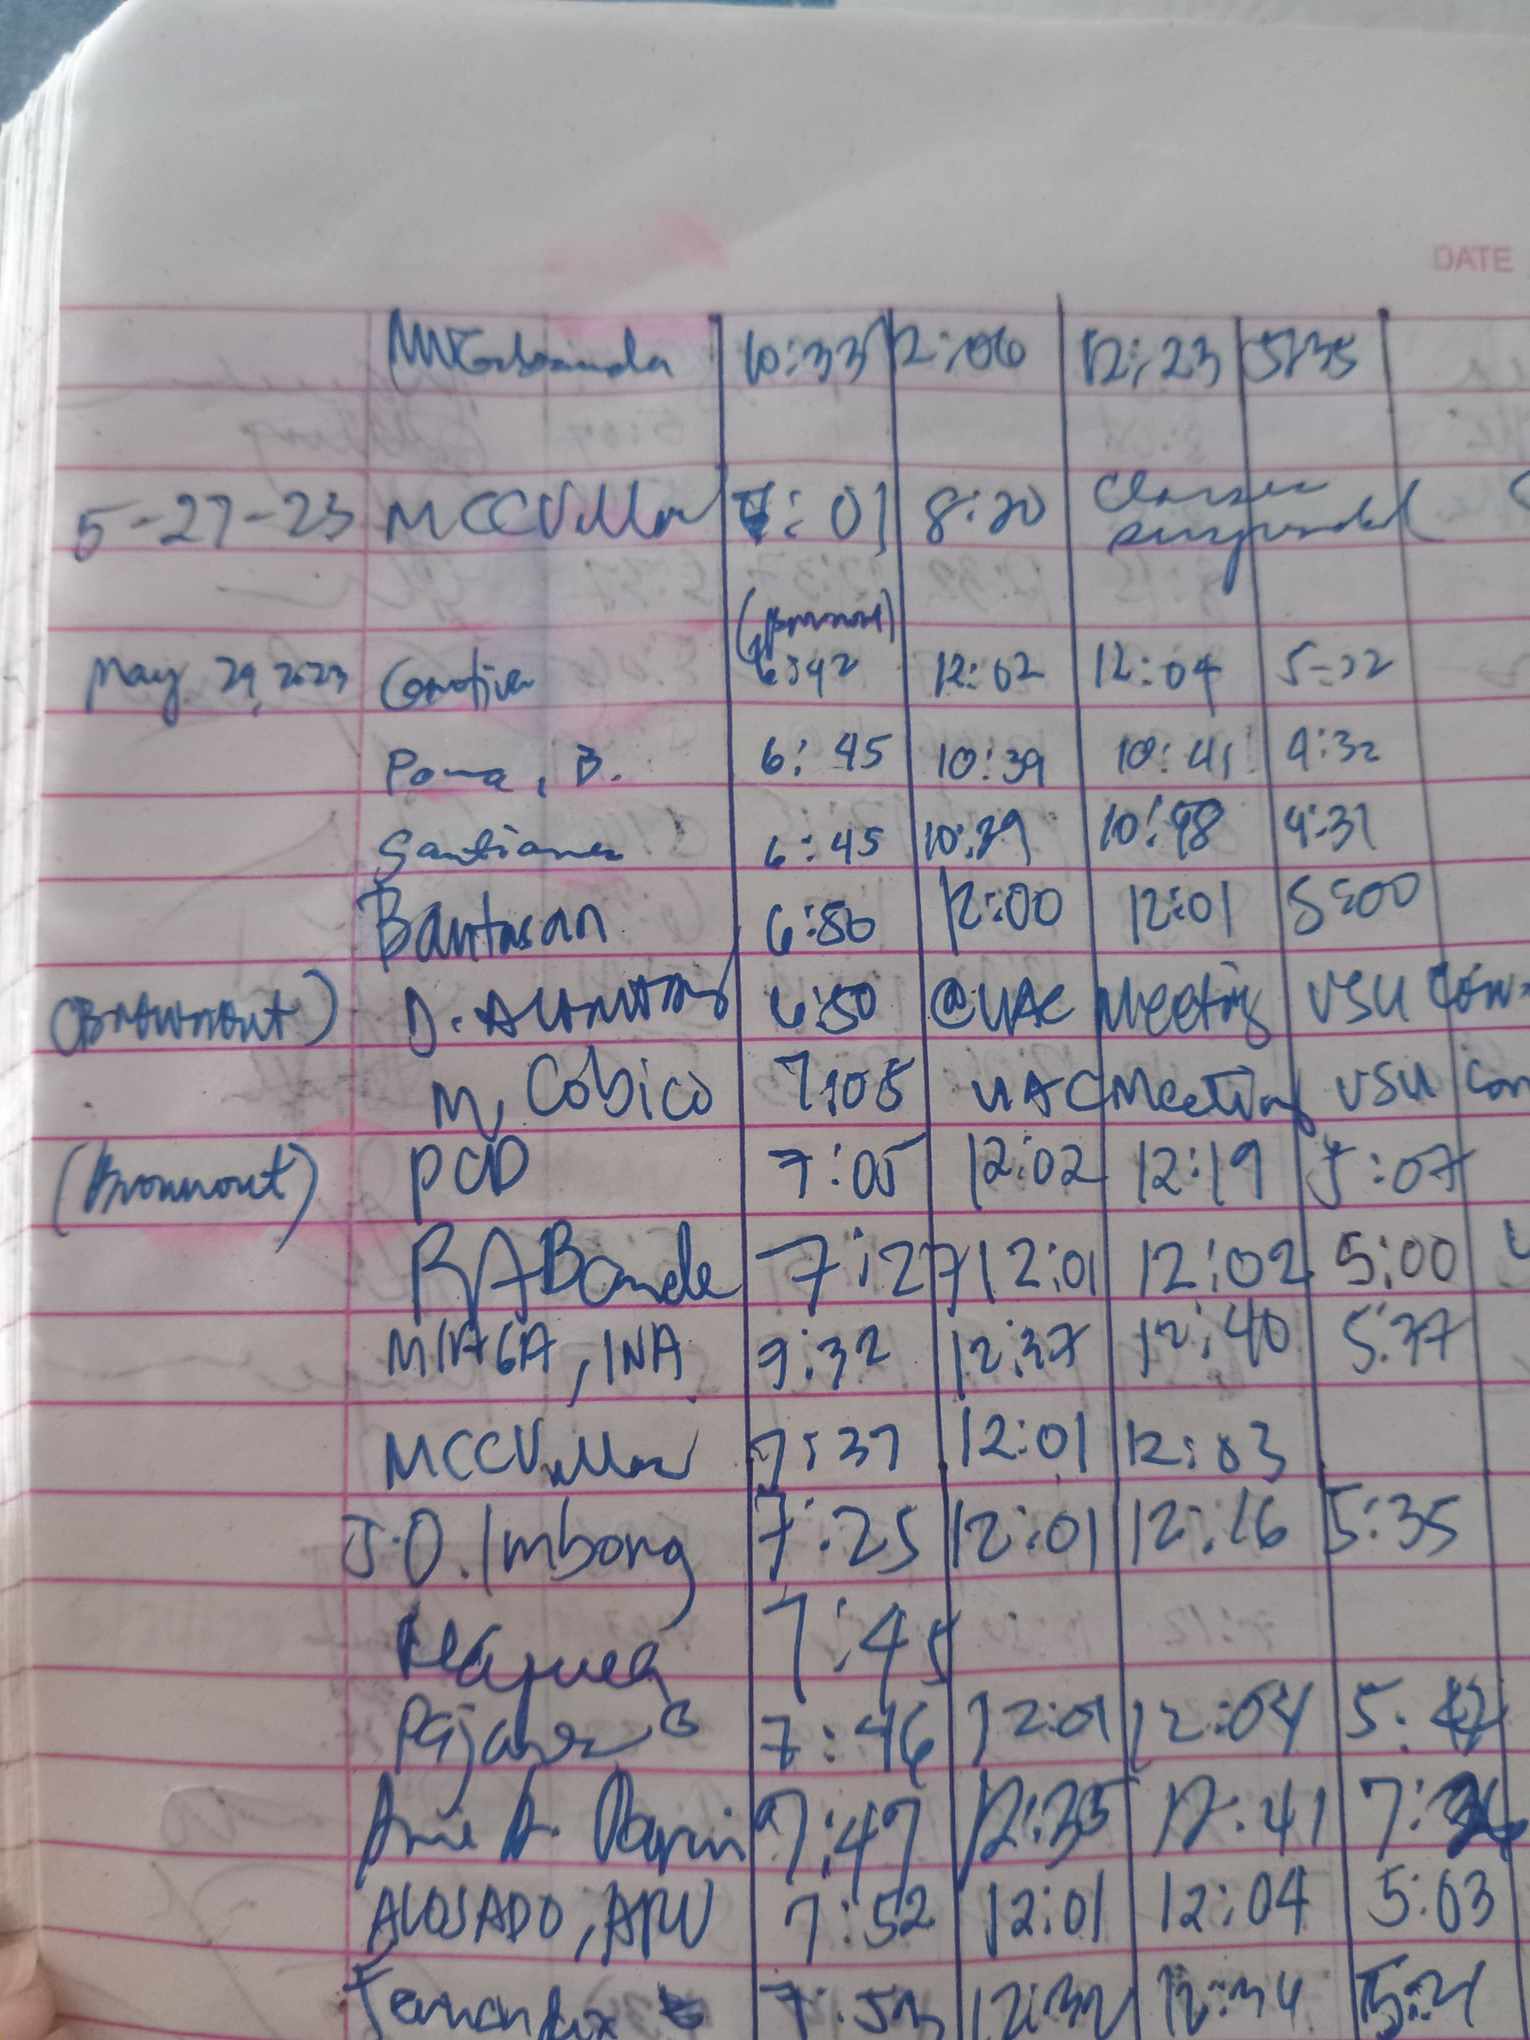 DATE
10:33 12:06 12:23 5:35
5-27-23 MCCVillar 7:01 8:20 Classes
suspended
(Brownout)
May 29, 2023 6:42 12:02 12:04 5-22
Poma, B. 6:45 10:39 10:41 4:32
Santianes 6:45 10:39 10:48 4:31
Bantasan 6:50 12:00 12:01 5:00
(Brownout) D. 6:50 @UAC Meeting VSU Con-
M, Cobico 7:05 UAC Meeting VSU Con
(Brownout) PCD 7:05 12:02 12:19 5:07
RABande 7:27 12:01 12:02 5:00
MIAGA, INA 9:32 12:37 12:40 5:37
MCCVillar 7:37 12:01 12:03
J.O. Imbong 7:25 12:01 12:16 5:35
7:45
Pajares B 7:46 12:01 12:04 5:
A. 7:47 12:35 12:41 7:
ALOSADO, APW 7:52 12:01 12:04 5:03
Fernandez 7:53 12:32 12:34 5:21